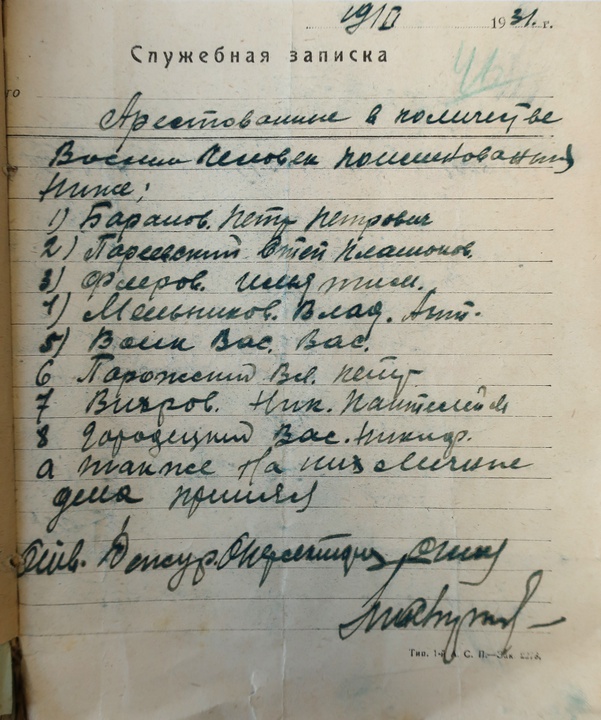 19/II 1931. г.
Служебная записка
го
Арестованные в количестве
Восьми Человек поименованных
Ниже;
1) Баранов. Петр Петрович
2) Степ
3) Флеров.
4) Мельников. Влад. Ант.
5) Волк Вас. Вас.
6 Порожский Вл. Петр
7 Вихров. Ник. Пантелейм
8 Городецкий Вас. Никиф.
а также На них Личные
дела принял
Дежур.
Тип. 1-й А. С. П.—Зак.